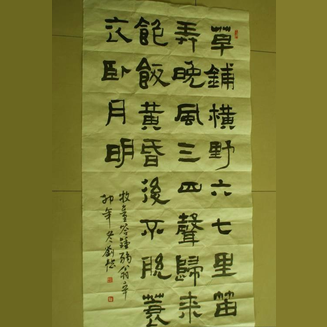 草鋪橫野六七里笛
弄晚風三四聲歸來
飽飯黃昏後不脫蓑
衣臥月明
牧童答鍾弱翁辛
卯年冬劉